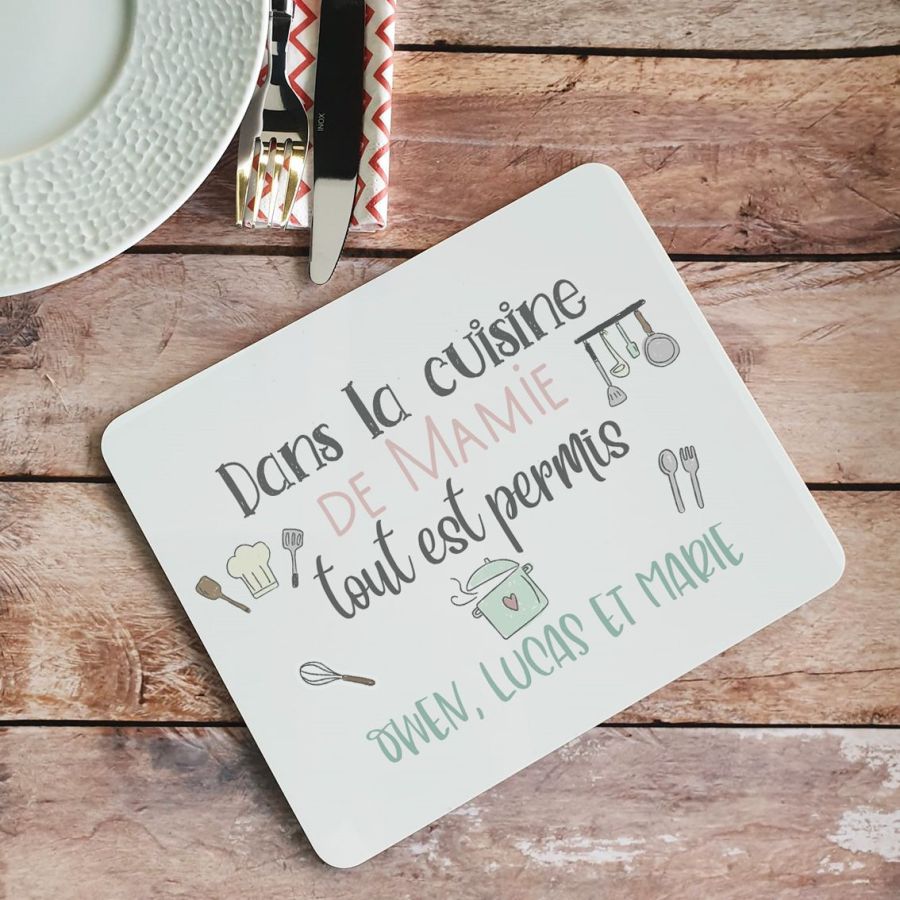 INOX
Dans la cuisine
DE MAMIE
tout est permis
OWEN, LUCAS ET MARIE